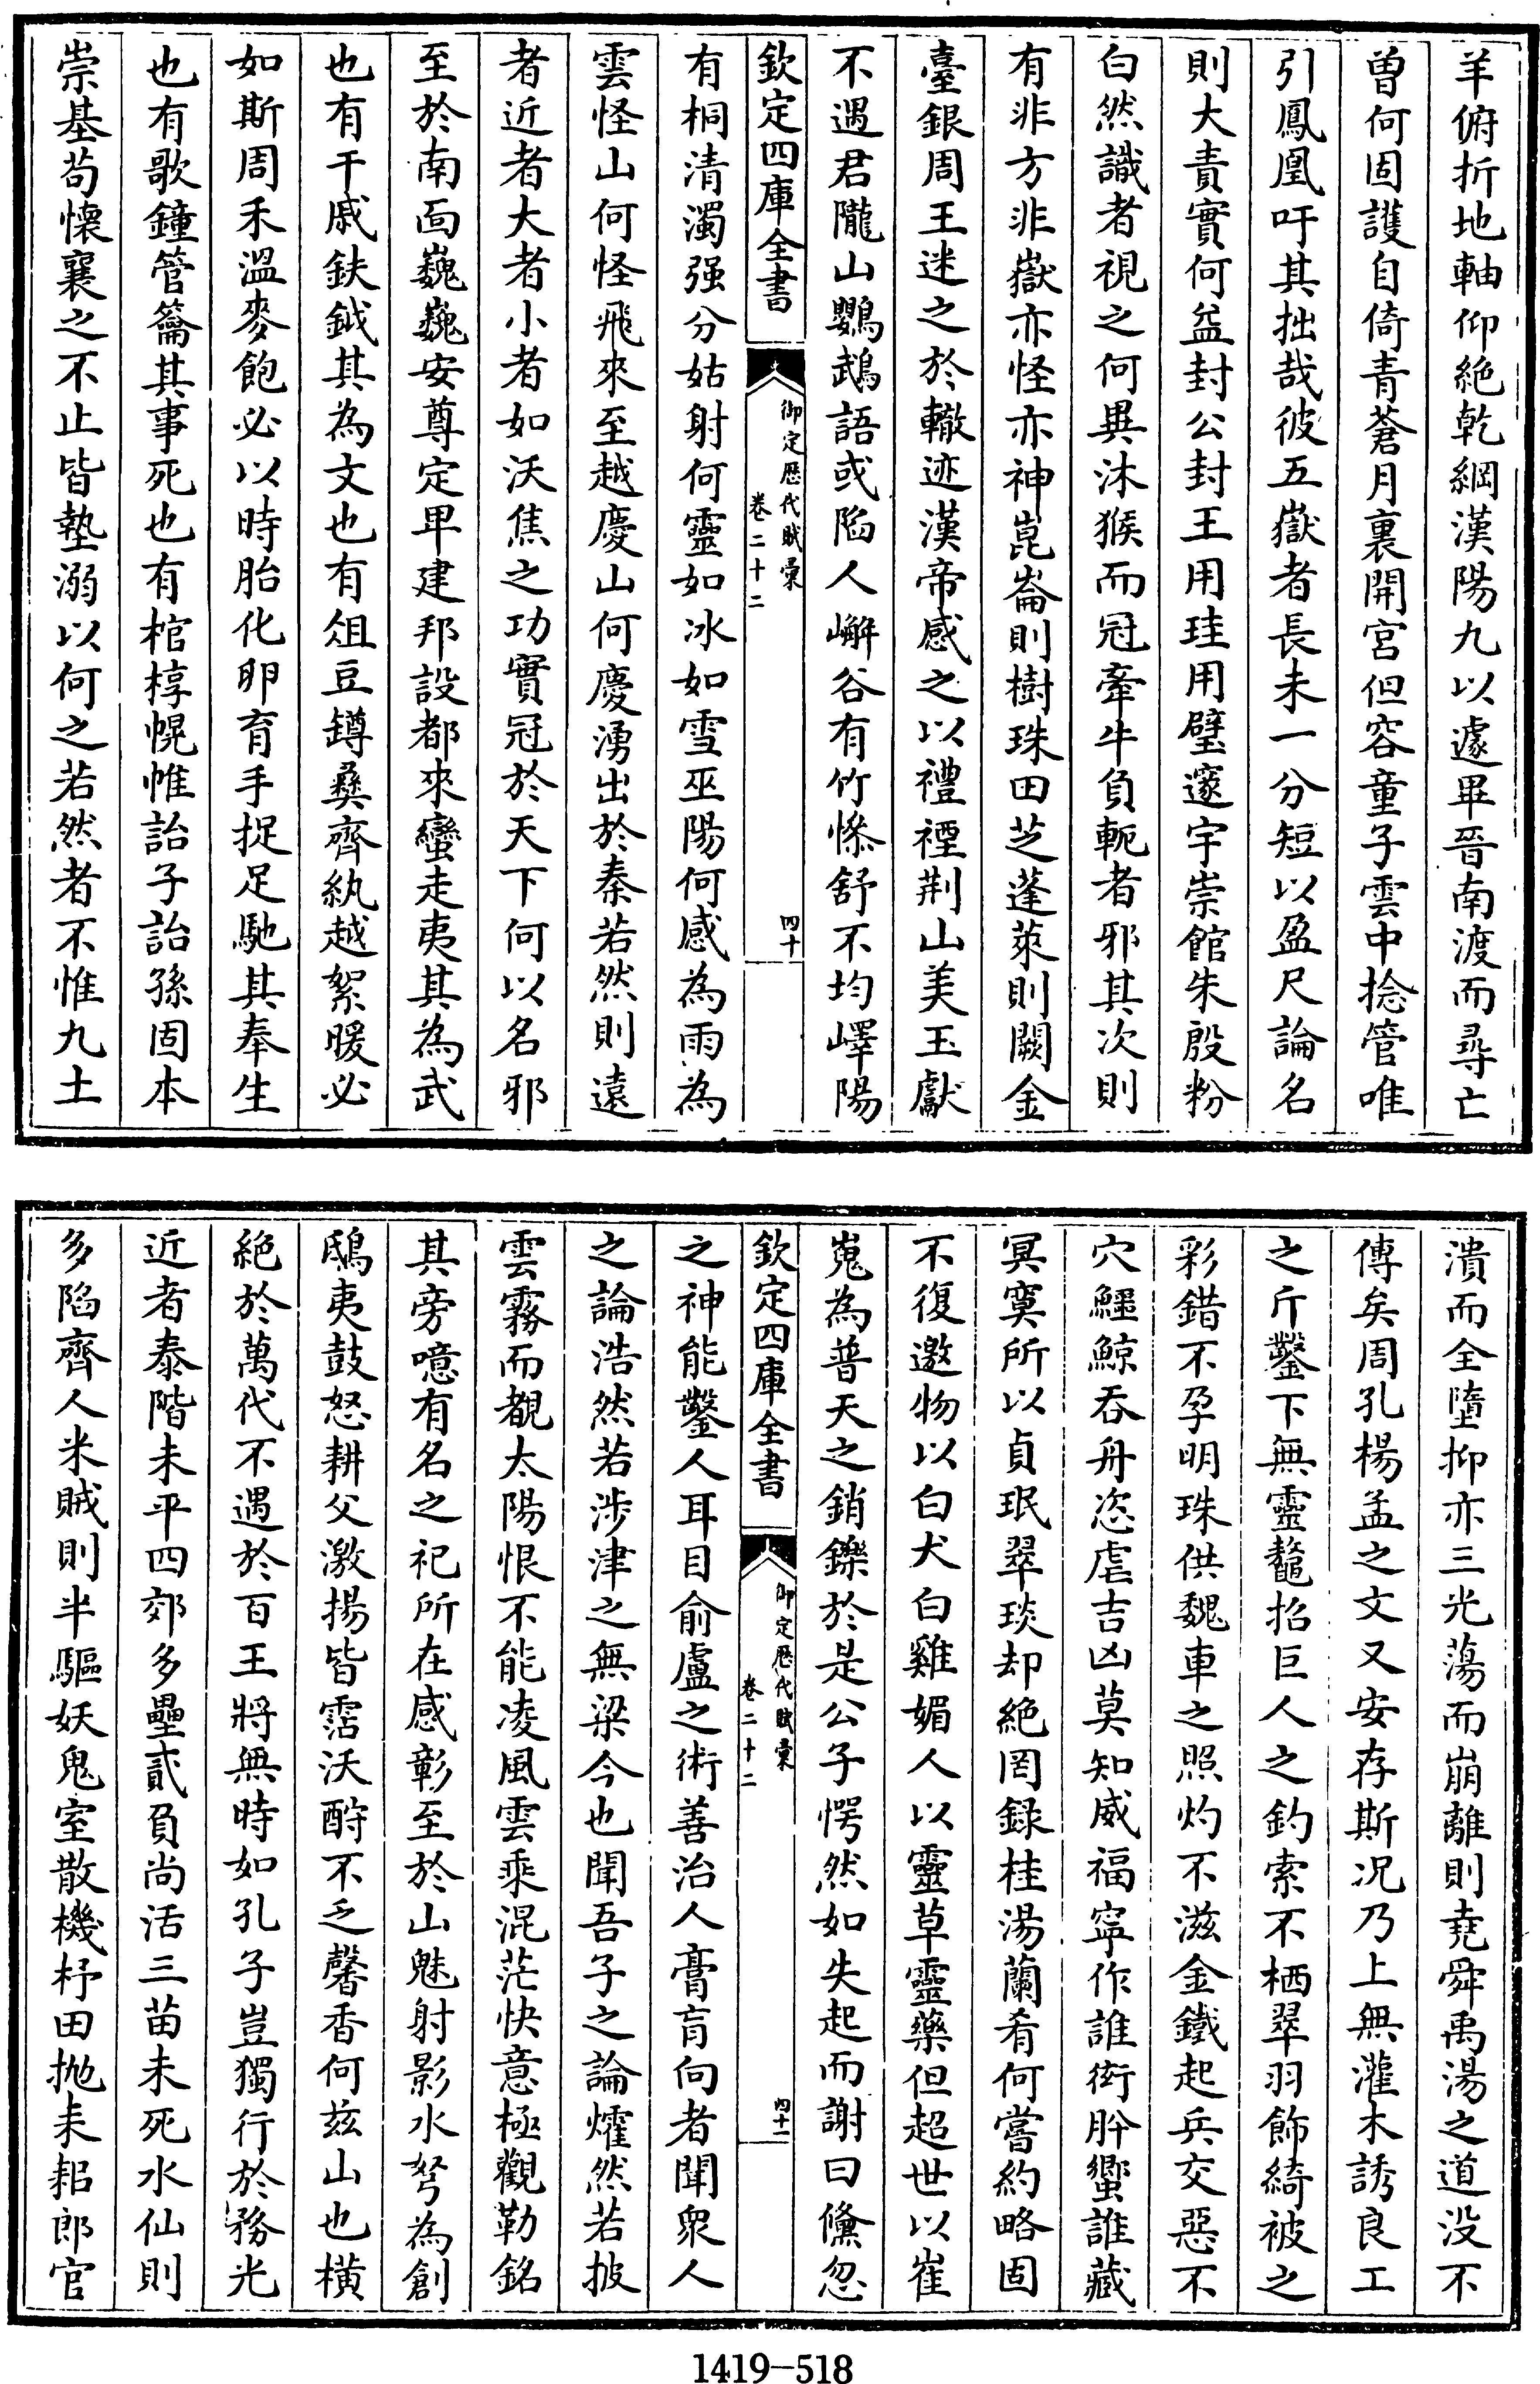 羊俯折地軸仰絶乾綱漢陽九以遽畢晉南渡而尋亡
曽何固護自倚青蒼月裏開宮但容童子雲中捻管唯
引鳳凰吁其拙哉彼五嶽者長未一分短以盈尺論名
則大責實何益封公封王用珪用璧邃宇崇館朱殷粉
白然識者視之何異沐猴而冠牽牛負軛者邪其次則
有非方非嶽亦怪亦神崑崙則樹珠田芝蓬萊則闕金
臺銀周王迷之於轍迹漢帝感之以禮禋荆山美玉獻
不遇君隴山鸚鵡語或陷人嶰谷有竹慘舒不均嶧陽
欽定四庫全書
御定歴代賦彙
卷二十二
四十
有桐清濁强分姑射何靈如冰如雪巫陽何感為雨為
雲怪山何怪飛來至越慶山何慶湧出於秦若然則遠
者近者大者小者如沃焦之功實冠於天下何以名邪
至於南面巍巍安尊定卑建邦設都來蠻走夷其為武
也有干戚鈇鉞其為文也有俎豆罇彝齊紈越絮暖必
如斯周禾溫麥飽必以時胎化卵育手捉足馳其奉生
也有歌鐘管籥其事死也有棺椁幌帷詒子詒孫固本
崇基茍懷襄之不止皆墊溺以何之若然者不惟九土
潰而全墮抑亦三光蕩而崩離則堯舜禹湯之道没不
傳矣周孔楊孟之文又安存斯况乃上無灌木誘良工
之斤鑿下無靈鼇招巨人之釣索不栖翠羽飾綺被之
彩錯不孕明珠供魏車之照灼不滋金鐵起兵交惡不
穴鱷鯨吞舟恣虐吉凶莫知威福寧作誰衒肸蠁誰藏
冥寞所以貞珉翠琰却絶罔録桂湯蘭肴何嘗約略固
不復邀物以白犬白雞媚人以靈草靈藥但超世以崔
嵬為普天之銷鑠於是公子愕然如失起而謝曰儵忽
欽定四庫全書
御定歴代賦彙
卷二十二
四十一
之神能鑿人耳目俞盧之術善治人膏肓向者聞衆人
之論浩然若涉津之無梁今也聞吾子之論爟然若披
雲霧而覩太陽恨不能凌風雲乘混茫快意極觀勒銘
其旁噫有名之祀所在感彰至於山魅射影水弩為創
鴟夷鼓怒耕父激揚皆霑沃酹不乏馨香何兹山也橫
絶於萬代不遇於百王將無時如孔子豈獨行於務光
近者泰階未平四郊多壘貳負尚活三苗未死水仙則
多陷齊人米賊則半驅妖鬼室散機杼田抛耒耜郎官
1419-518